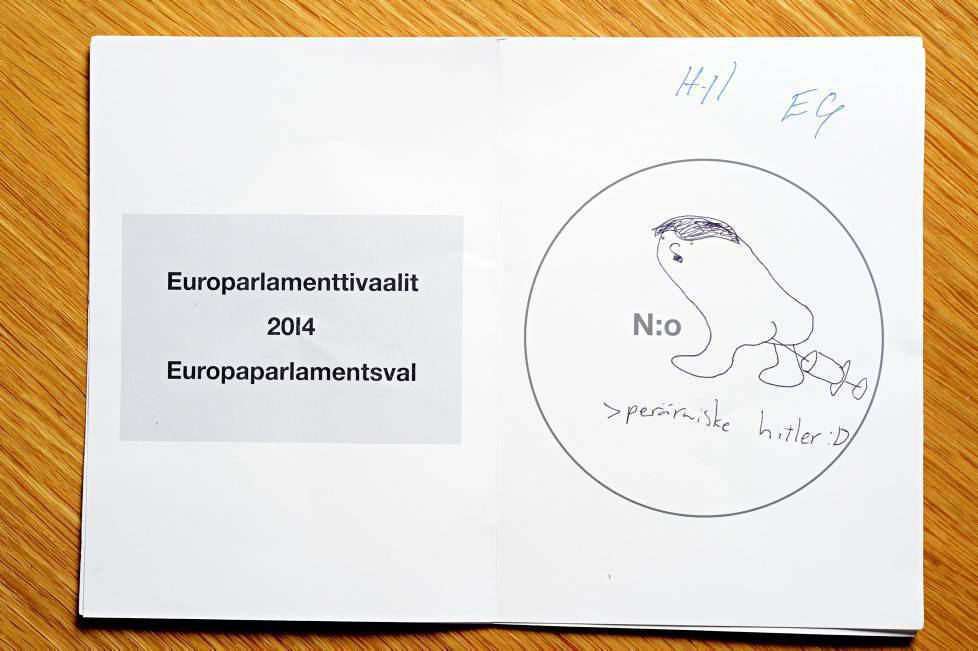 Europarlamenttivaalit
2014
Europaparlamentsval
EG
N:o
>peräruiske hitler :D